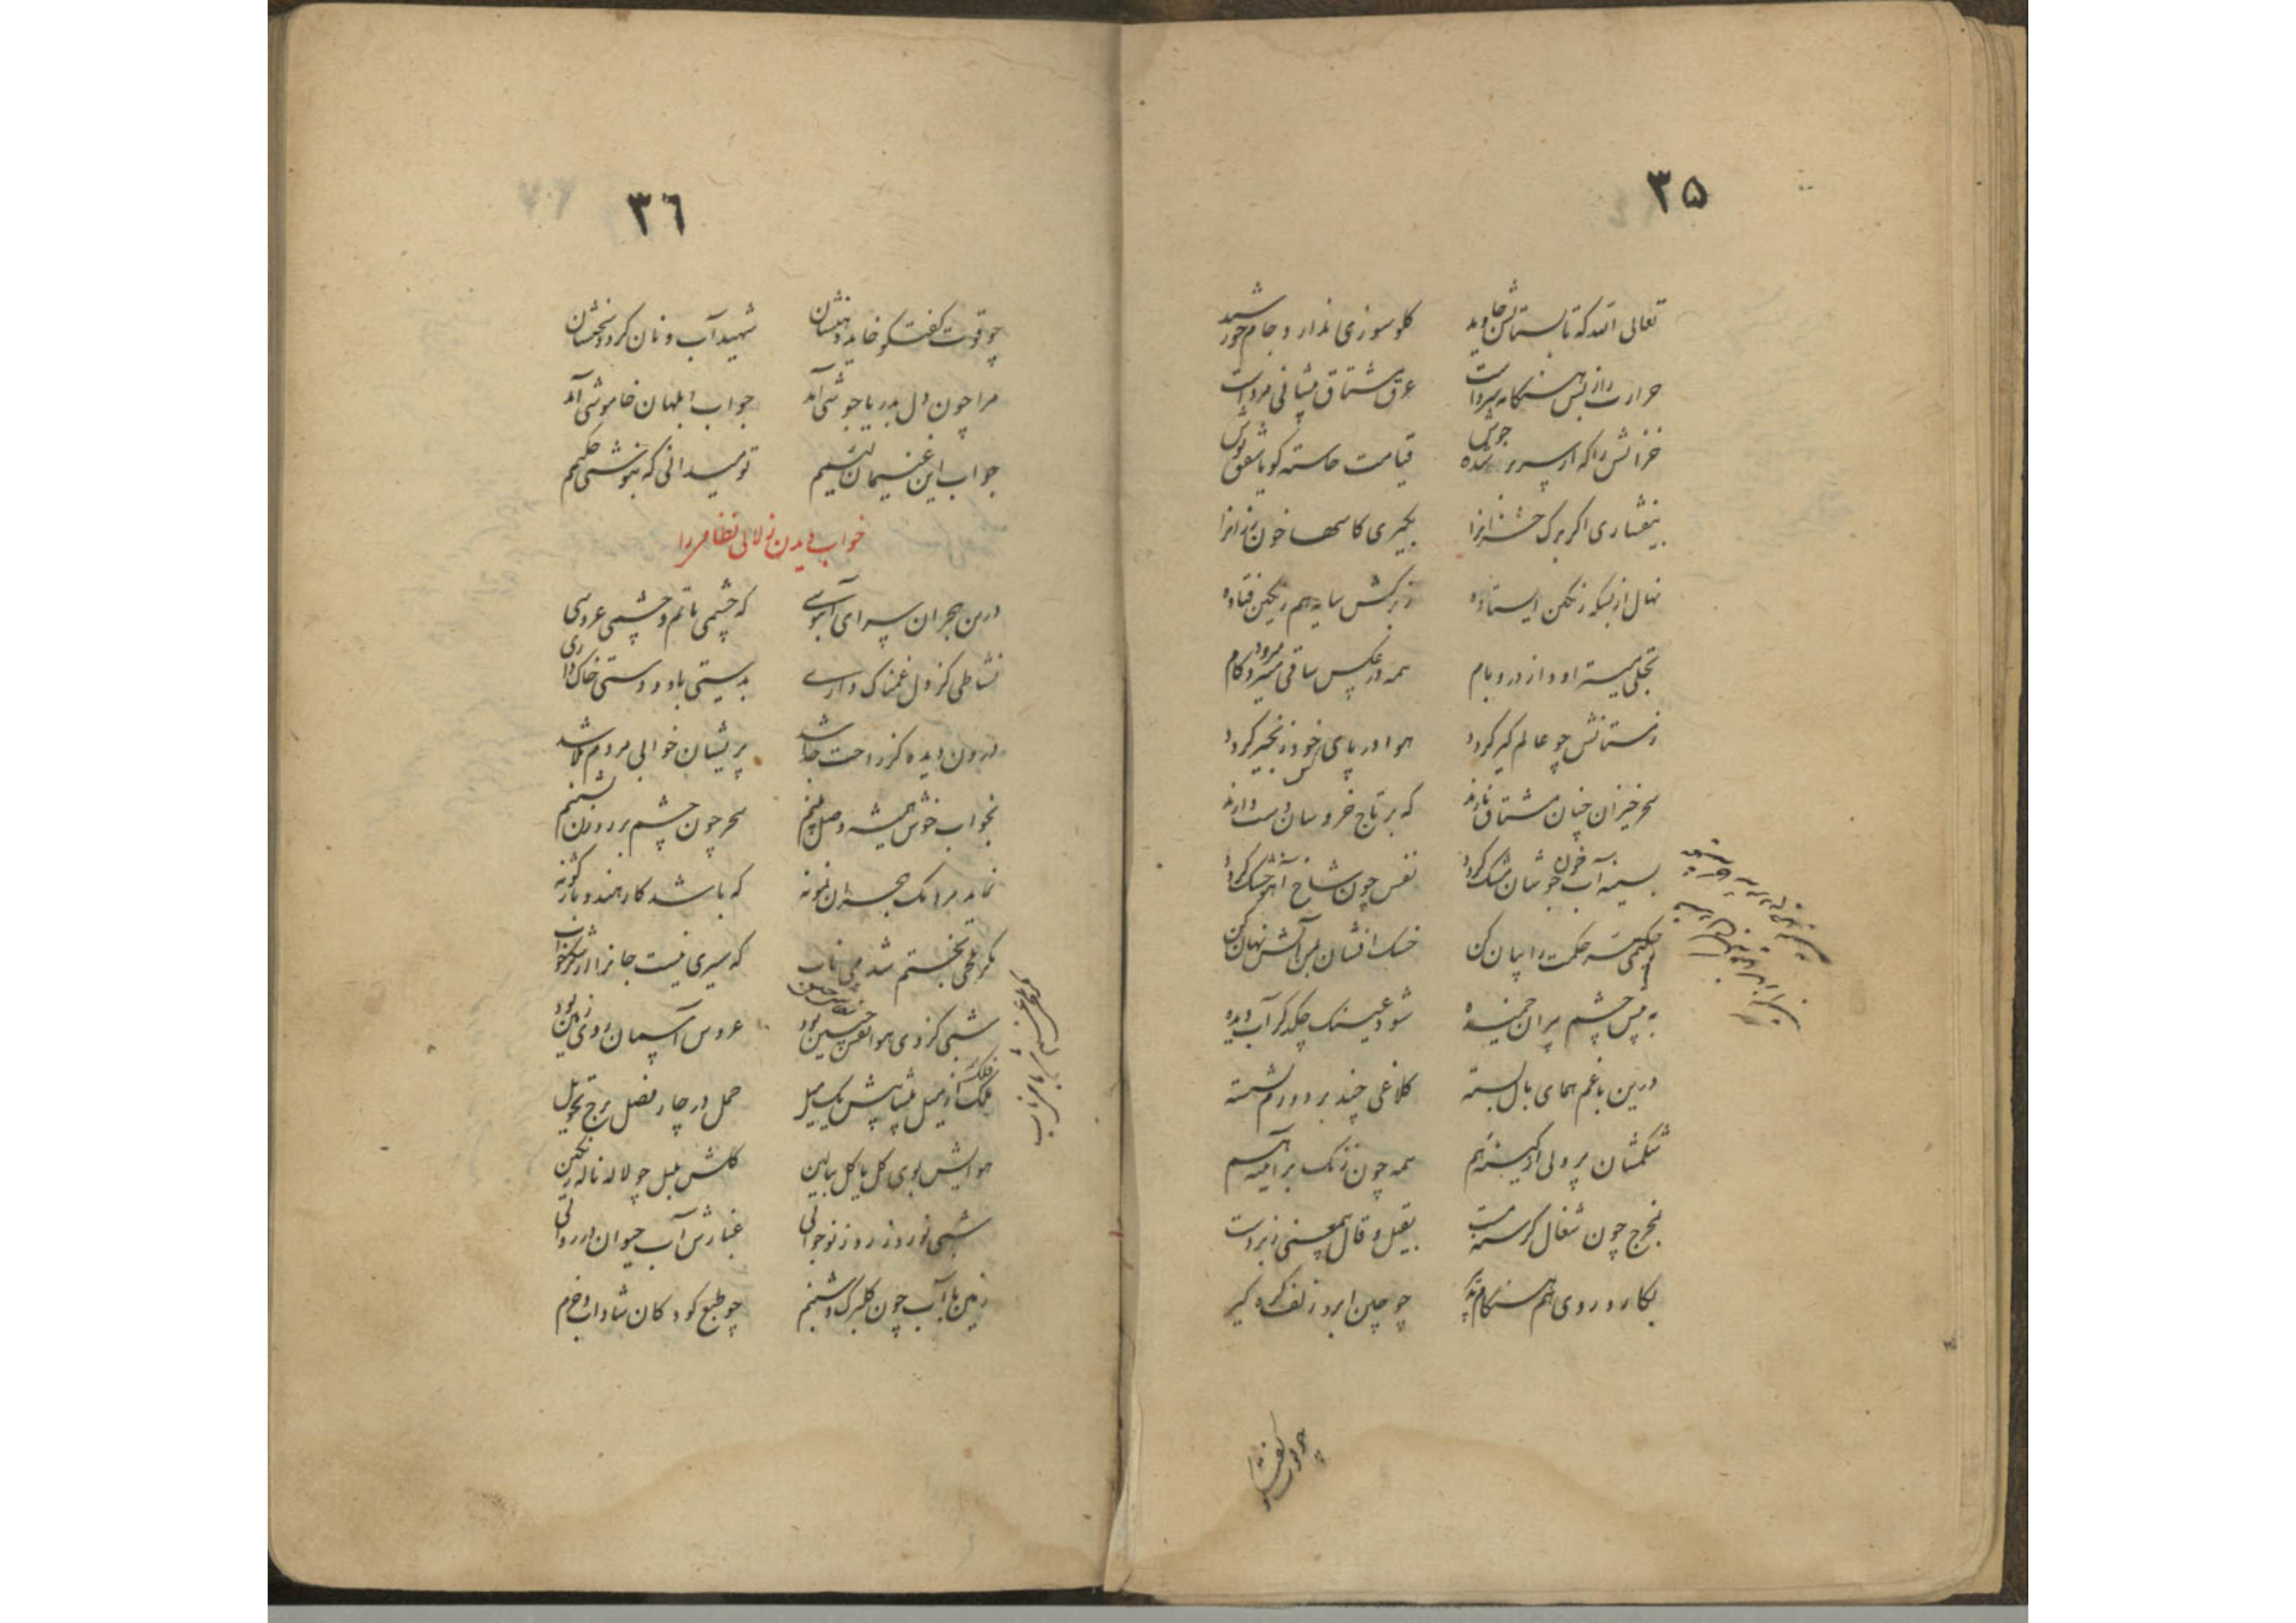 ۳۵
تعالی الله که تابستانش جاوید گلو سوزی ندارد جام خورشید
حرارت را ز بس هنگامه سرد است عرق مشتاق پیشانی مرد است
خزانش را که از سر جوش قیامت خاسته گویا شفق پوش
بیفشاری اگر برگ خزانرا بگیری کاسها خون رزانرا
نهال از بسکه رنگین ایستاده ز برگش سایه هم رنگین فتاده
تجلی میستراود از در و بام همه در عکس ساقی میرود کام
زمستانش چو عالم گیر گردد هوا در پای خود زنجیر گردد
سحر خیزان چنان مشتاق نارند که بر تاج خروسان دست دارند
بسینه آب خون جوشان مشک گردد نفس چون شاخ آهو خشک گردد
حکیمی سر حکمت را بیان کن خسک افشان بس آتش نهان کن
به پیش چشم پیران خمیده شود عینک چکد گر آب دیده
درین باغم همای بال بسته کلاغی چند بر دورم نشسته
شکمشان پر ولی از کینه هم همه چون زنگ بر آیینه هم
بخرج چون شغال گرسنه مست بقیل و قال بیمعنی زبردست
بکار و روی هم هنگام چو چین ابرو زلف گره گیر
چو قوت گفتگو
۳٦
چو قوت گفتگو خاید دهنشان شهید آب و نان گردد سخنشان
مرا چون دل بدریا جوشی آمد جواب ابلهان خاموشی آمد
جواب این غنیمان لئیم تو میدانی که بنوشتی حکیم
خواب دیدن زلالی نظامی را
درین هجران سرای آبنوسی که چشمی ماتم و چشمی عروسی
نشاطی کز دل غمناک داری بدستی باد و دستی خاک داری
درون دیده کز راحت جدا شد پریشان خوابی مردم بلا شد
بخواب خوش همیشه وصل بینم سحر چون چشم بر روزن نشینم
نماید مرا یک هجران نمونه که باشد کار هندو باژگونه
مگر تلخی بختم شد می ناب که سیری نیست جانرا از شکر خواب
شبی کز وی هوا نقش چین بود عروس آسمان روی زمین بود
فلک از میل پیشاپیش یک میل حمل در چار فصل برج تحویل
هوایش بوی گل با گل ببالین گلش بلبل چو لاله ناله رنگین
شبی نوروز روز نوجوانی غبارش آب حیوان در روانی
زمین با آب چون گلبرگ و شبنم چو طبع کودکان شاداب و خرم